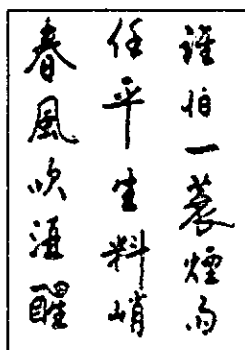 誰怕一蓑煙雨
任平生料峭
春風吹酒醒